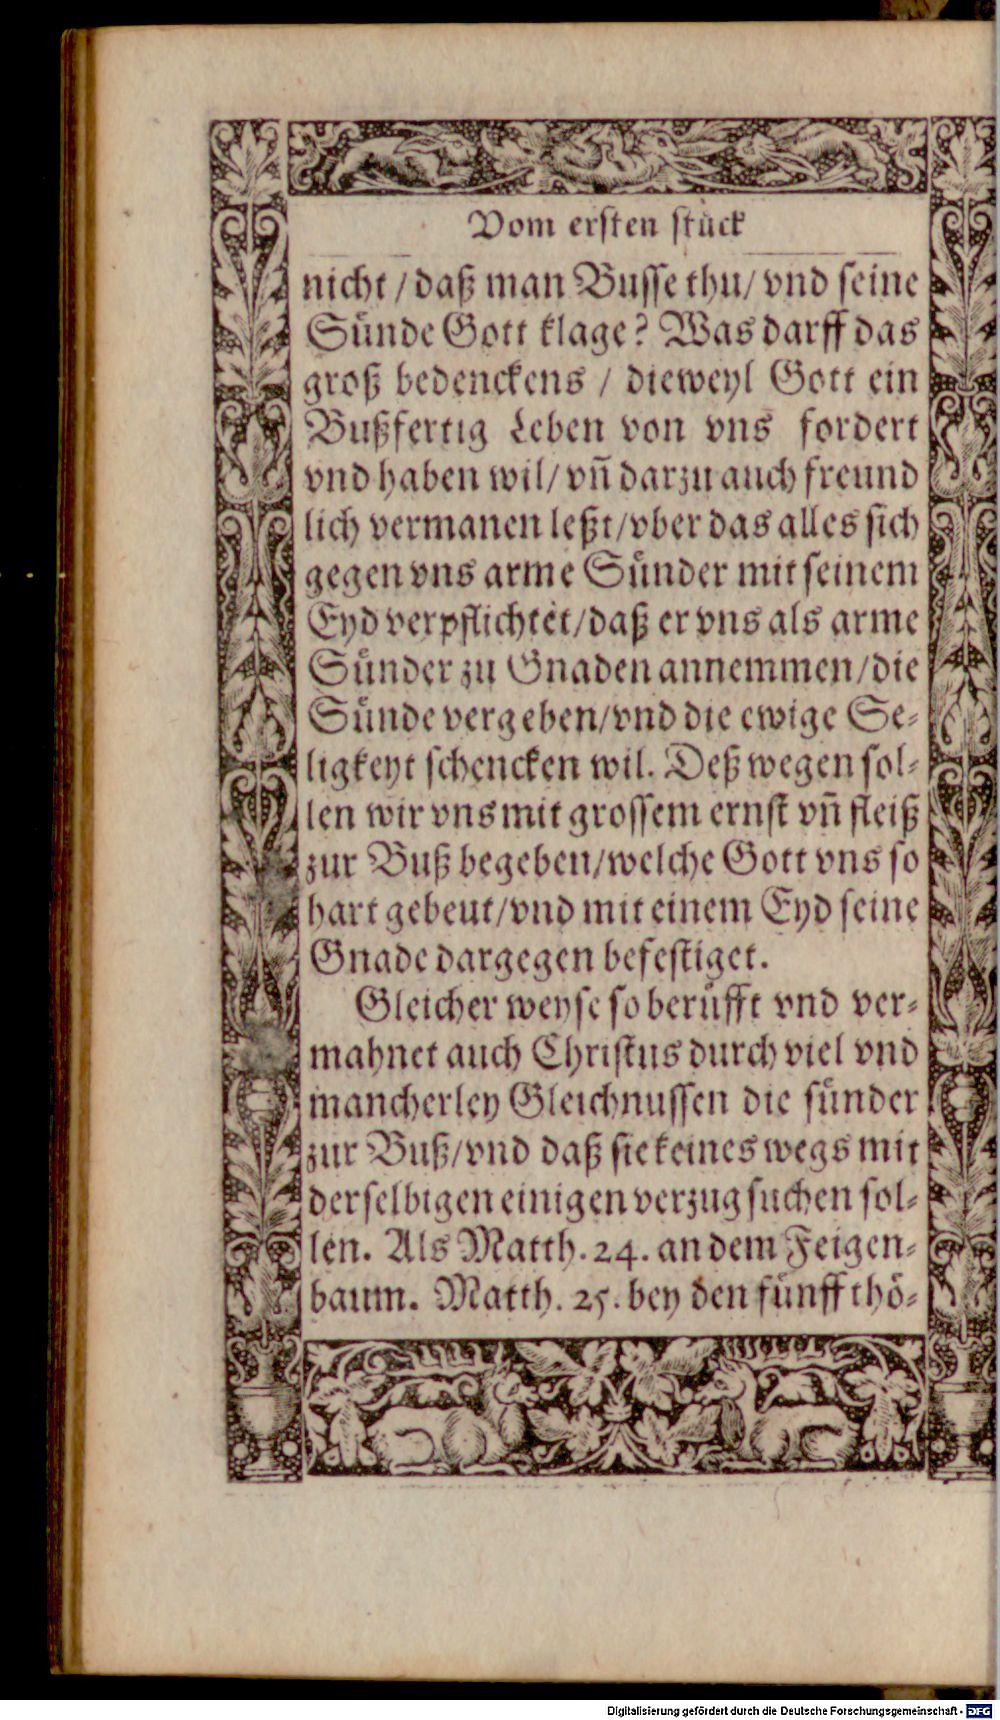 Vom ersten stück
nicht / daß man Busse thu / vnd seine
Sünde Gott klage? Was darff das
groß bedenckens / dieweyl Gott ein
Bußfertig Leben von vns fordert
vnd haben wil / vñ darzu auch freund
lich vermanen leßt / vber das alles sich
gegen vns arme Sünder mit seinem
Eyd verpflichtet / daß er vns als arme
Sünder zu Gnaden annemmen / die
Sünde vergeben / vnd die ewige Se-
ligkeyt schencken wil. Deß wegen sol-
len wir vns mit grossem ernst vñ fleiß
zur Buß begeben / welche Gott vns so
hart gebeut / vnd mit einem Eyd seine
Gnade dargegen befestiget.
Gleicher weyse so berüfft vnd ver-
mahnet auch Christus durch viel vnd
mancherley Gleichnussen die sünder
zur Buß / vnd daß sie keines wegs mit
derselbigen einigen verzug suchen sol-
len. Als Matth. 24. an dem Feigen-
baum. Matth. 25. bey den fünff thö-
Digitalisierung gefördert durch die Deutsche Forschungsgemeinschaft - DFG